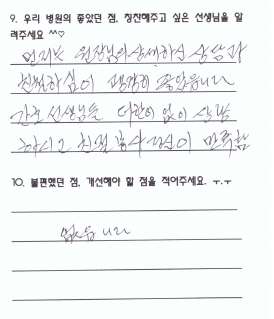 9. 우리 병원의 좋았던 점, 칭찬해주고 싶은 선생님을 알
려주세요 ^^♡
먼저는 원장님의 상세하신 상담과
친절하심이 굉장히 좋았습니다
간호 선생님들 더할나위 없이 상담
하시고 친절 하사
10. 불편했던 점, 개선해야 할 점을 적어주세요. ㅜ.ㅜ
없습니다